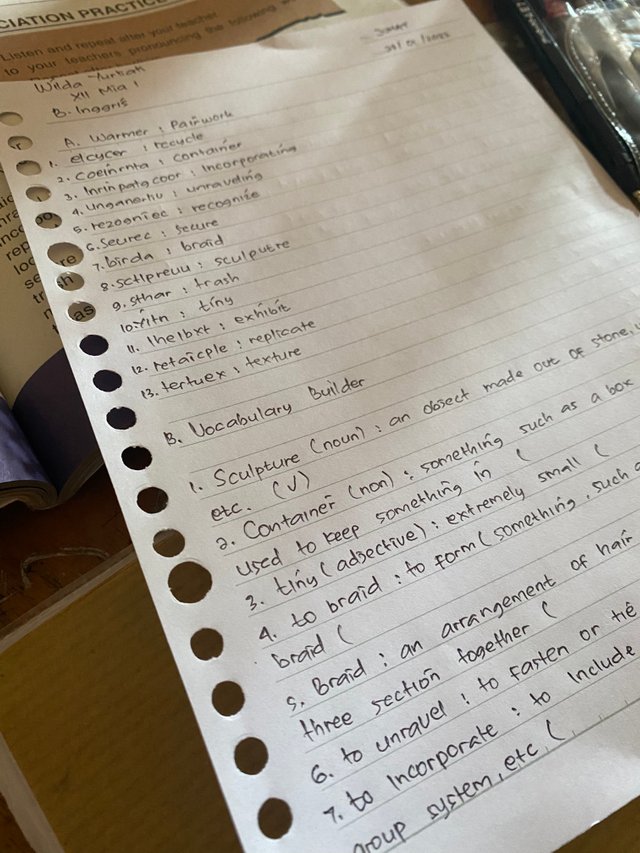 CIATION PRACTICE
Listen and repeat after your teacher
to your teachers pronouncing the following
Wilda
XII Mia 1
B. Inggris
A. Warmer : Pairwork
1. elcycer : recycle
2. coeinrnta : container
3. Inrinpatgcoor : Incorporating
4. unganerliu : unraveling
5. rezogniec : recognize
6. Seurec : secure
7. birda : braid
8. sctlpreuu : sculputre
9. sthar : trash
10. yitn : tiny
11. Ihelbxt : exhibit
12. retaicple : replicate
13. tertuex : texture
B. Vocabulary Builder
1. Sculpture (noun) : an object made out of stone,
etc. (√)
2. Container (non) : something such as a box
used to keep something in (
3. tiny (adjective) : extremely small (
4. to braid : to form (something, such a
braid (
5. Braid : an arrangement of hair
three section together (
6. to unravel : to fasten or tie
7. to Incorporate : to Include
group system, etc (